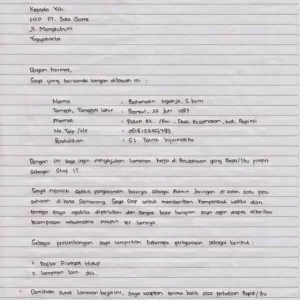 Kepada Yth.
HRD PT. Suka Game
Jl. Mangkubumi
Yogyakarta
Dengan hormat,
Saya yang bertanda tangan dibawah ini :
Nama : Baharudin S.kom
Tempat, Tanggal lahir : Bantul, 22 Juni 1987
Alamat : Dusun Kec. Kab.
No. Telp /HP :
Pendidikan : S1 Teknik Informatika
Dengan ini saya ingin mengajukan lamaran kerja di Perusahaan yang Bapak/Ibu pimpin
sebagai Staf IT.
Saya memiliki sebagai Admin Jaringan di salah satu peru-
sahaan di kota Semarang. Saya siap untuk memberikan kompetensi waktu dan
tenaga saya apabila diperlukan dan sangat besar harapan saya agar dapat diberikan
kesempatan wawancara maupun tes lainnya.
Sebagai pertimbangan saya lampirkan beberapa persyaratan sebagai berikut :
1. Daftar Riwayat Hidup
2. lampiran lain dsb.
Demikian surat lamaran kerja ini, saya ucapkan terima kasih atas perhatian Bapak/Ibu